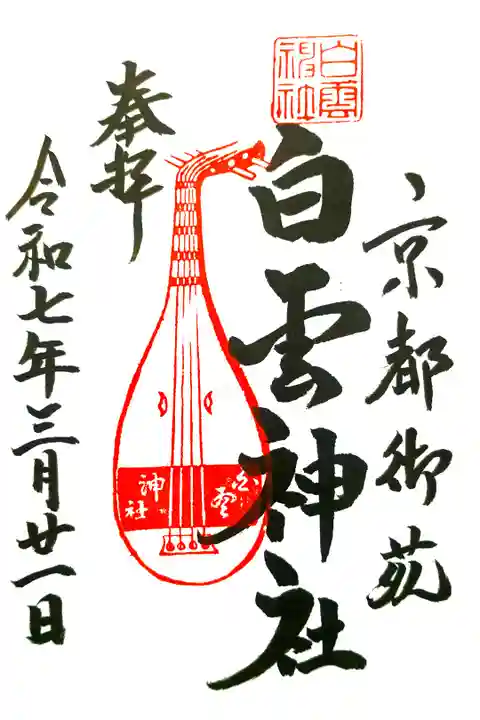 京都御苑
白雲
神社
白雲神社
奉拝
白雲
神社
令和七年三月廿一日